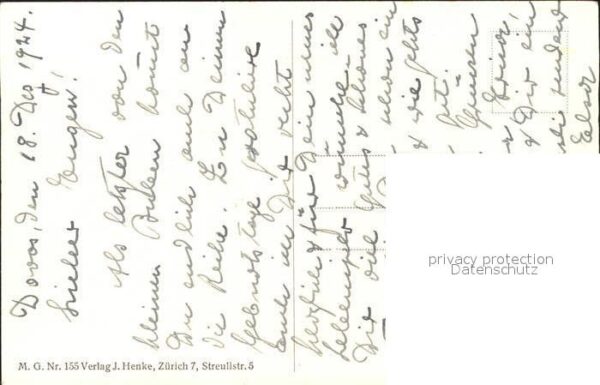 Davos, den 18. Dez 1924.
Lieber Eugen!
Als letzter von den
kleinen Buben kommst
Du endlich auch an
die Reihe. Zu Deinem
Geburtstage gratuliere
auch ich Dir recht
herzlich & für Dein neues
Lebensjahr wünsche ich
Dir viel Gutes & Schönes
schon ein
& wie gehts
gut.
Grüssen
& Dir ein
M. G. Nr. 155 Verlag J. Henke, Zürich 7, Streulistr. 5
privacy protection
Datenschutz